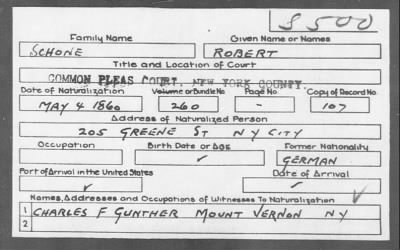 S500
Family Name Given Name or Names
SCHONE ROBERT
Title and Location of Court
COMMON PLEAS COURT, NEW YORK COUNTY.
Date of Naturalization Volume or Bundle No Page No Copy of Record No
MAY 4 1860 260 - 107
Address of Naturalized Person
205 GREENE ST NY CITY
Occupation Birth Date or Age Former Nationality
GERMAN
Port of Arrival in the United States Date of Arrival
✓ ✓
Names, Addresses and Occupations of Witnesses To Naturalization ✓
1 CHARLES F GUNTHER MOUNT VERNON NY
2